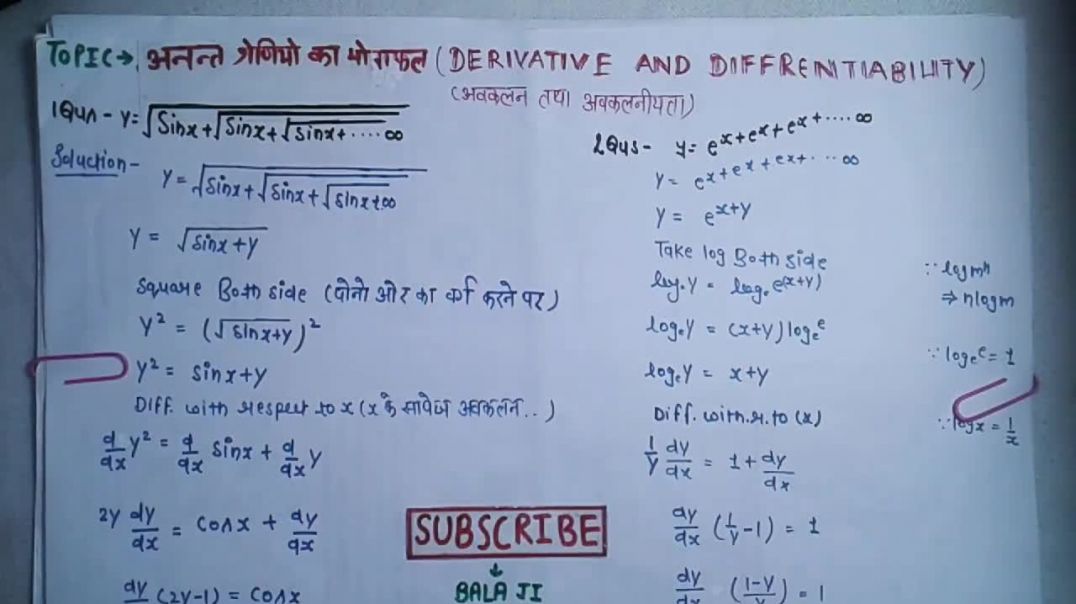 TOPIC→ अनन्त श्रेणियो का योगफल (DERIVATIVE AND DIFFRENTIABILITY)
(अवकलन तथा अवकलनीयता)
1Qus - y=√sinx+√sinx+√sinx+....∞
Soluction-
y=√sinx+√sinx+√sinx+∞
y = √sinx+y
Square Both side (दोनो ओर का वर्ग करने पर)
y² = (√sinx+y)²
y² = sinx+y
Diff. with respect to x (x के सापेक्ष अवकलन..)
d/dx y² = d/dx sinx + d/dx y
2y dy/dx = cosx + dy/dx
dy (2y-1) = cosx
2Qus- y= e^x+e^x+e^x+....∞
y= e^x+e^x+e^x+...∞
y = e^x+y
Take log Both side
log.y = logₑ e^(x+y)
logₑy = (x+y) logₑe
logₑy = x+y
Diff. with.r.to (x)
1/y dy/dx = 1+ dy/dx
dy/dx (1/y -1) = 1
dy/dx (1-y/y) = 1
∵ logmⁿ
⇒ nlogm
∵ logₑe = 1
∵ logx = 1/x
SUBSCRIBE
↓
BALA JI